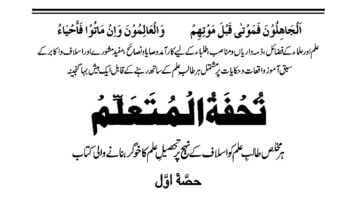 اَلْجَاهِلُوْنَ فَمَوْتٰى قَبْلَ مَوْتِهِمْ وَالْعَالِمُوْنَ وَاِنْ مَاتُوْا فَاَحْيَاءُ
علم اور علماء کے فضائل، ذمہ داریاں و مناصب طلباء کے لیے کار آمد وصایا و نصائح، مفید مشورے اور اسلاف و اکابر کے
سبق آموز واقعات و حکایات پر مشتمل ہر طالب علم کے ساتھ رہنے کے قابل ایک بیش بہا گنجینہ
تُحْفَةُ الْمُتَعَلِّمْ
ہر مخلص طالب علم کو اسلاف کے نہج پر تحصیلِ علم کا خوگر بنانے والی کتاب
حصّۂ اوّل